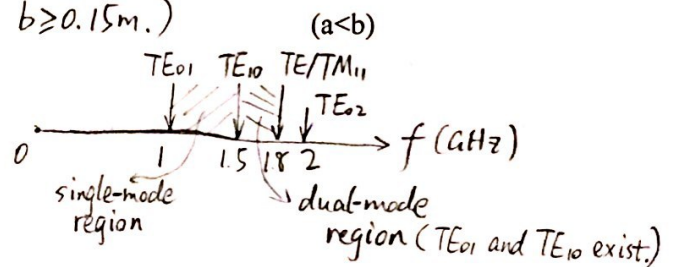 b≥0.15m.) (a<b)
TE₀₁ TE₁₀ TE/TM₁₁
TE₀₂
0 1 1.5 1.8 2 f(GHz)
single-mode
region
dual-mode
region (TE₀₁ and TE₁₀ exist.)